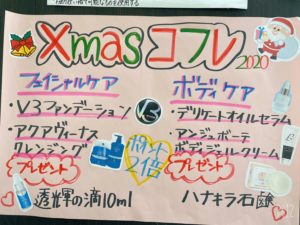 Xmasコフレ
2020
フェイシャルケア
・V3ファンデーション
・アクアヴィーナス
クレンジング
プレゼント
透輝の滴10ml
V3
ポイント
2倍
ボディケア
・デリケートオイルセラム
・アンジュボーテ
ボディジェルクリーム
プレゼント
ハナキラ石鹸